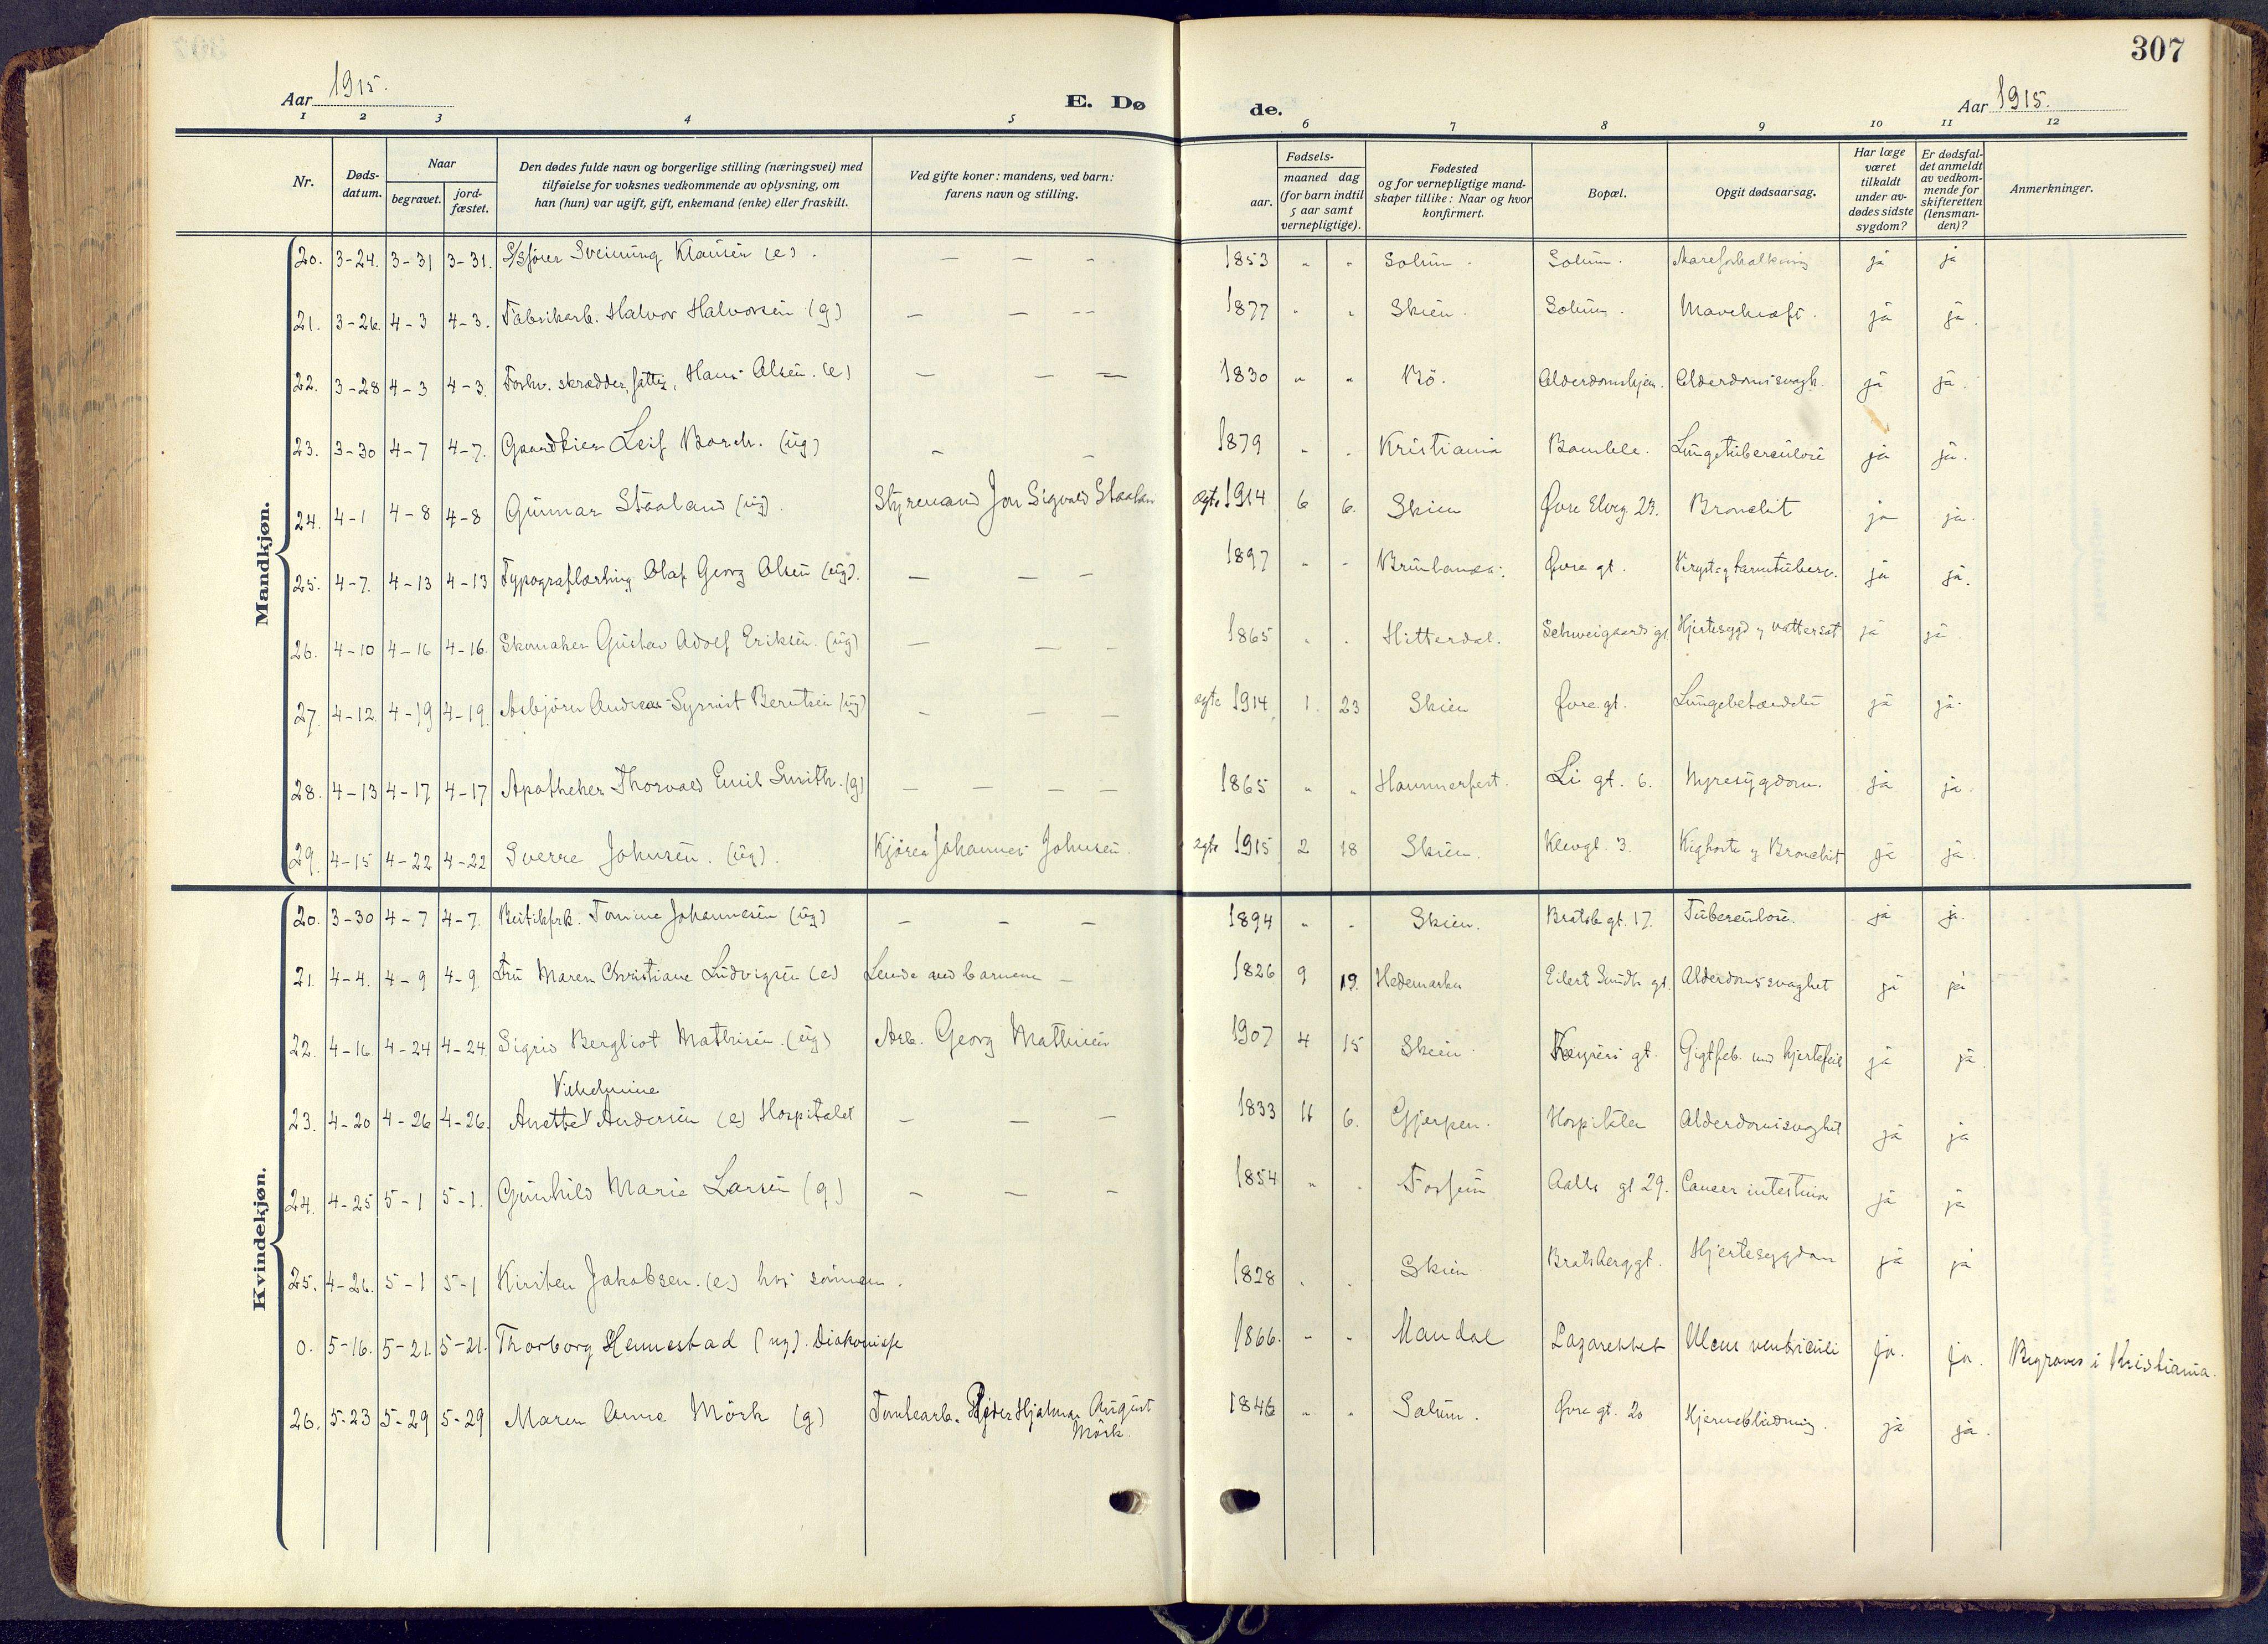 307
Aar 1915. E. Dø de. Aar 1915.
1 2 3 4 5 6 7 8 9 10 11 12
Nr. Døds-datum. Naar begravet. jord-fæstet. Den dødes fulde navn og borgerlige stilling (næringsvei) med tilføielse for voksnes vedkommende av oplysning, om han (hun) var ugift, gift, enkemand (enke) eller fraskilt. Ved gifte koner: mandens, ved barn: farens navn og stilling. Fødsels- aar. maaned dag (for barn indtil 5 aar samt vernepligtige). Fødested og for vernepligtige mand-skaper tillike: Naar og hvor konfirmert. Bopæl. Opgit dødsaarsag. Har læge været tilkaldt under av-dødes sidste sygdom? Er dødsfal-det anmeldt av vedkom-mende for skifteretten (lensman-den)? Anmerkninger.
Mandkjøn.
20. 3-24. 3-31 3-31. Sveinung Klausen (e). — — - 1853 " " Solum. Solum. Aareforkalkning ja ja
21. 3-26. 4-3 4-3. Fabrikarb. Halvor Halvorsen (g) — — -- 1877 " " Skien. Solum. Mavekræft. ja ja.
22. 3-28 4-3 4-3. Forhv. skrædder, fattig, Hans Olsen. (e) — — — 1830 " " Bö. Alderdomshjem. Alderdomssvagh. ja ja.
23. 3-30 4-7 4-7. Leif Borch. (ug) - - 1879 " " Kristiania Bamble. Lungetuberculose ja ja.
24. 4-1 4-8 4-8 Gunnar Staaland (ug). Styrmand Jon Sigvald ægte 1914 6 6. Skien Øvre Elveg. 23. Bronchit ja ja.
25. 4-7. 4-13 4-13 Typograflærling Olaf Georg Olsen (ug). — — - 1897 " " Brunlanes. Øvre gt. Bryst og tarmtuberc. ja ja.
26. 4-10 4-16 4-16. Skomaker Gustav Adolf Eriksen. (ug) — — - 1865 " " Hitterdal. Schweigaards gt Hjertesygd og vattersot ja ja.
27. 4-12. 4-19 4-19. Asbjörn Andreas Berntsen (ug) - — - ægte 1914 1. 23 Skien Øvre gt. Lungebetændelse ja ja.
28. 4-13 4-17 4-17 Apotheker Thorvald Emil Smith. (g) — — — — 1865 " " Hammerfest. Li gt. 6. Nyresygdom. ja ja.
29. 4-15 4-22 4-22 Sverre Johnsen. (ug). Kjører Johannes Johnsen. ægte 1915 2 18 Skien. Klevgt. 3. Kighoste og Bronchit ja ja.
Kvindekjøn.
20. 3-30 4-7 4-7. Butikfrk. Tomine Johannesen (ug) — — — 1894 " " Skien. Bratsb gt. 17. Tuberculose. ja ja.
21. 4-4. 4-9 4-9. Fru Maren Christiane Ludvigsen (e) Levde med barnene — 1826 9 19. Hedemarken Eilert Sundts gt. Alderdomssvaghet ja ja
22. 4-16. 4-24 4-24. Sigrid Bergliot Mathisen. (ug) Arb. Georg Mathisen 1907 4 15 Skien. Keysers gt. Gigtfeb. med hjertefeil ja ja.
Vilhelmine
23. 4-20 4-26 4-26. Anette V Andersen (e) Hospitalet — — — 1833 11 6. Gjerpen. Hospitalet Alderdomssvaghet ja ja
24. 4-25 5-1 5-1. Gunhild Marie Larsen (g) — — - 1854 " " Fossum Aalls gt 29. Cancer intestina ja ja
25. 4-26. 5-1 5-1 Kirsten Jakobsen. (e) hos sönnen. 1828 " " Skien Bratsberggt. Hjertesygdom ja ja
0. 5-16. 5-21. 5-21. Thorborg Hennestad (ug). Diakonisse 1866. " " Mandal Lazarettet Ulcus ventriculi ja. ja. Begraves i Kristiania.
26. 5-23 5-29 5-29 Maren Anne Mörk (g) Tomtearb. Peder Hjalmar August Mörk. 1846 " " Solum. Øvre gt. 20 Hjerneblödning. ja ja.